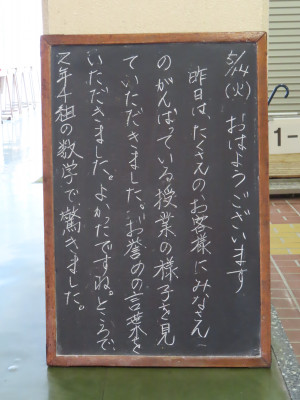 5/14(火) おはようございます
昨日は、たくさんのお客様にみなさん
のがんばっている授業の様子を見
ていただきました。お誉めの言葉を
いただきました。よかったですね。ところで
2年4組の数学で、驚きました。
1-